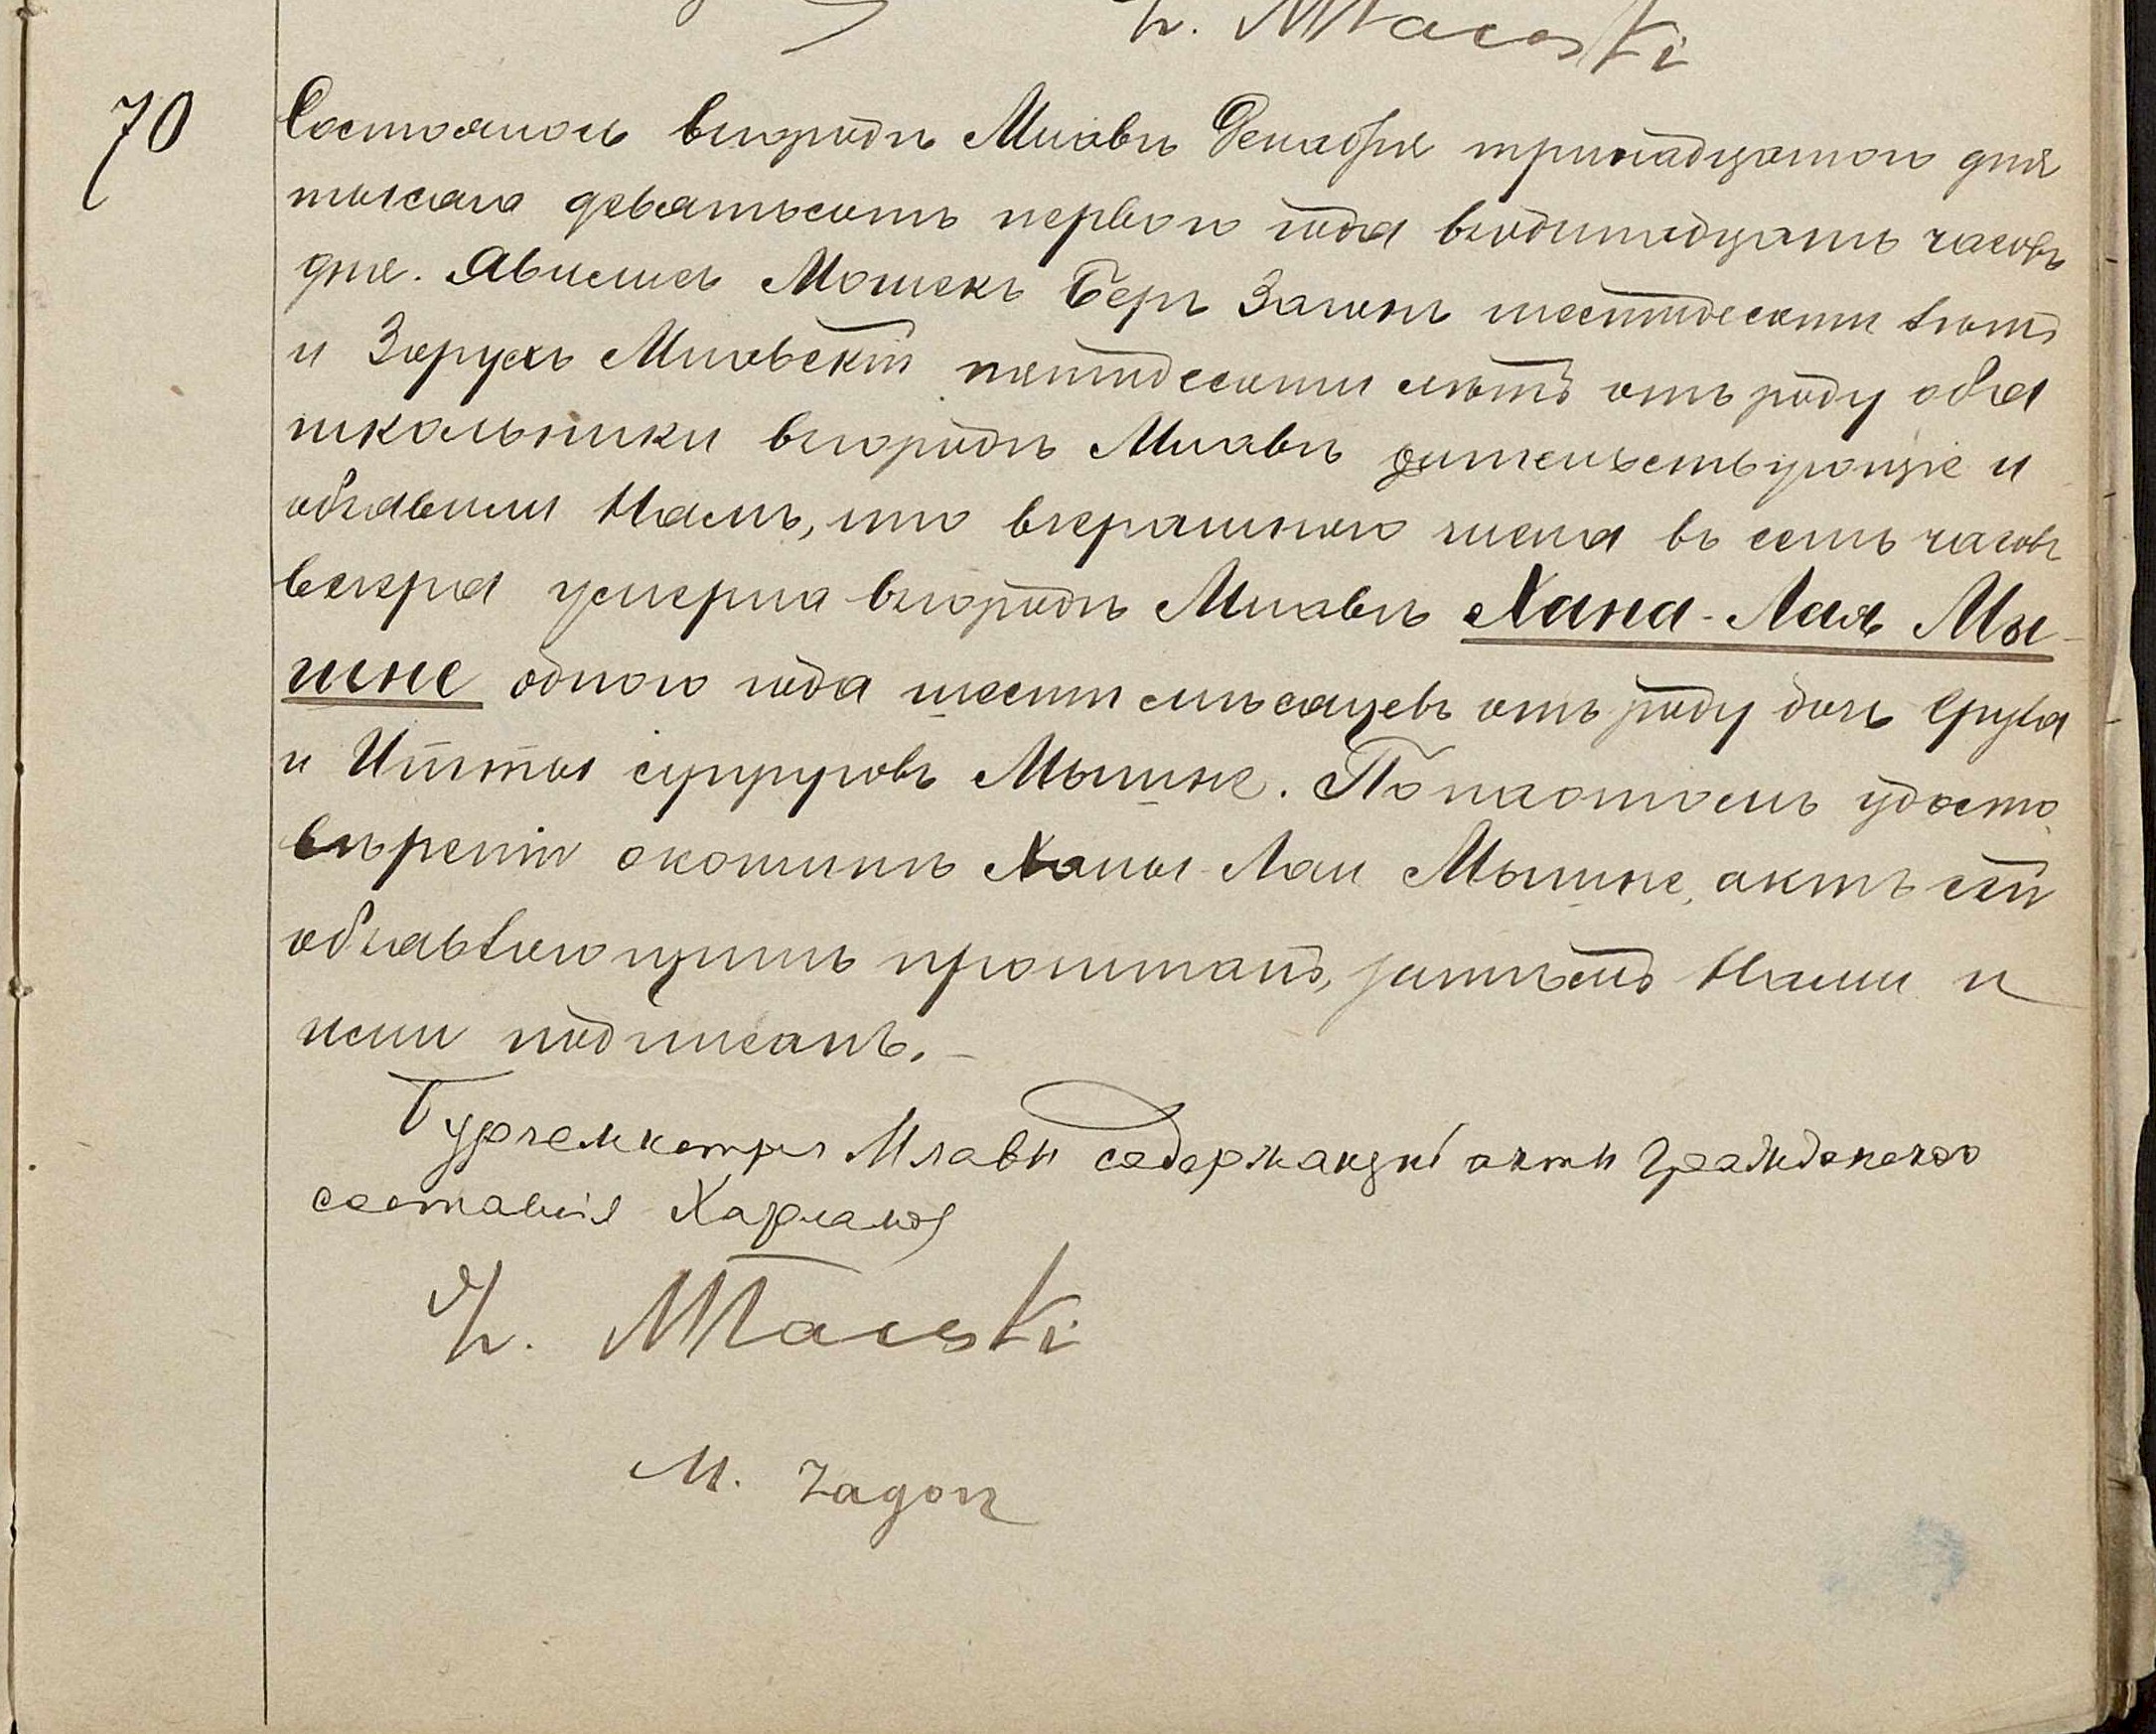 H. Mławski
70
Состоялось вгородѣ Млавѣ Декабря тринадцатого дня
тысяча девятьсотъ перваго года водинадцать часовъ
дня. Явились Мошекъ Беръ Загонъ шестидесяти лѣтъ
и Зорухъ Млавскій пятидесяти лѣтъ отъ роду оба
школьники вгородѣ Млавѣ жительствующіе и
объявили Намъ, что вчерашняго числа въ семь часовъ
вечера умерла вгородѣ Млавѣ Хана-Лая Мы-
шне одного года шести мѣсяцевъ отъ роду дочь
и Итты супруговъ Мышне. По настоомъ удосто
вѣреніи окончинѣ Ханы-Лаи Мышне, актъ сей
объявляющимъ прочитанъ, затѣмъ Нами и
ими подписанъ.-
Бургомистръ Млавы содержащій акты гражданскаго
состоянія
H. Mławski
M. Zagon